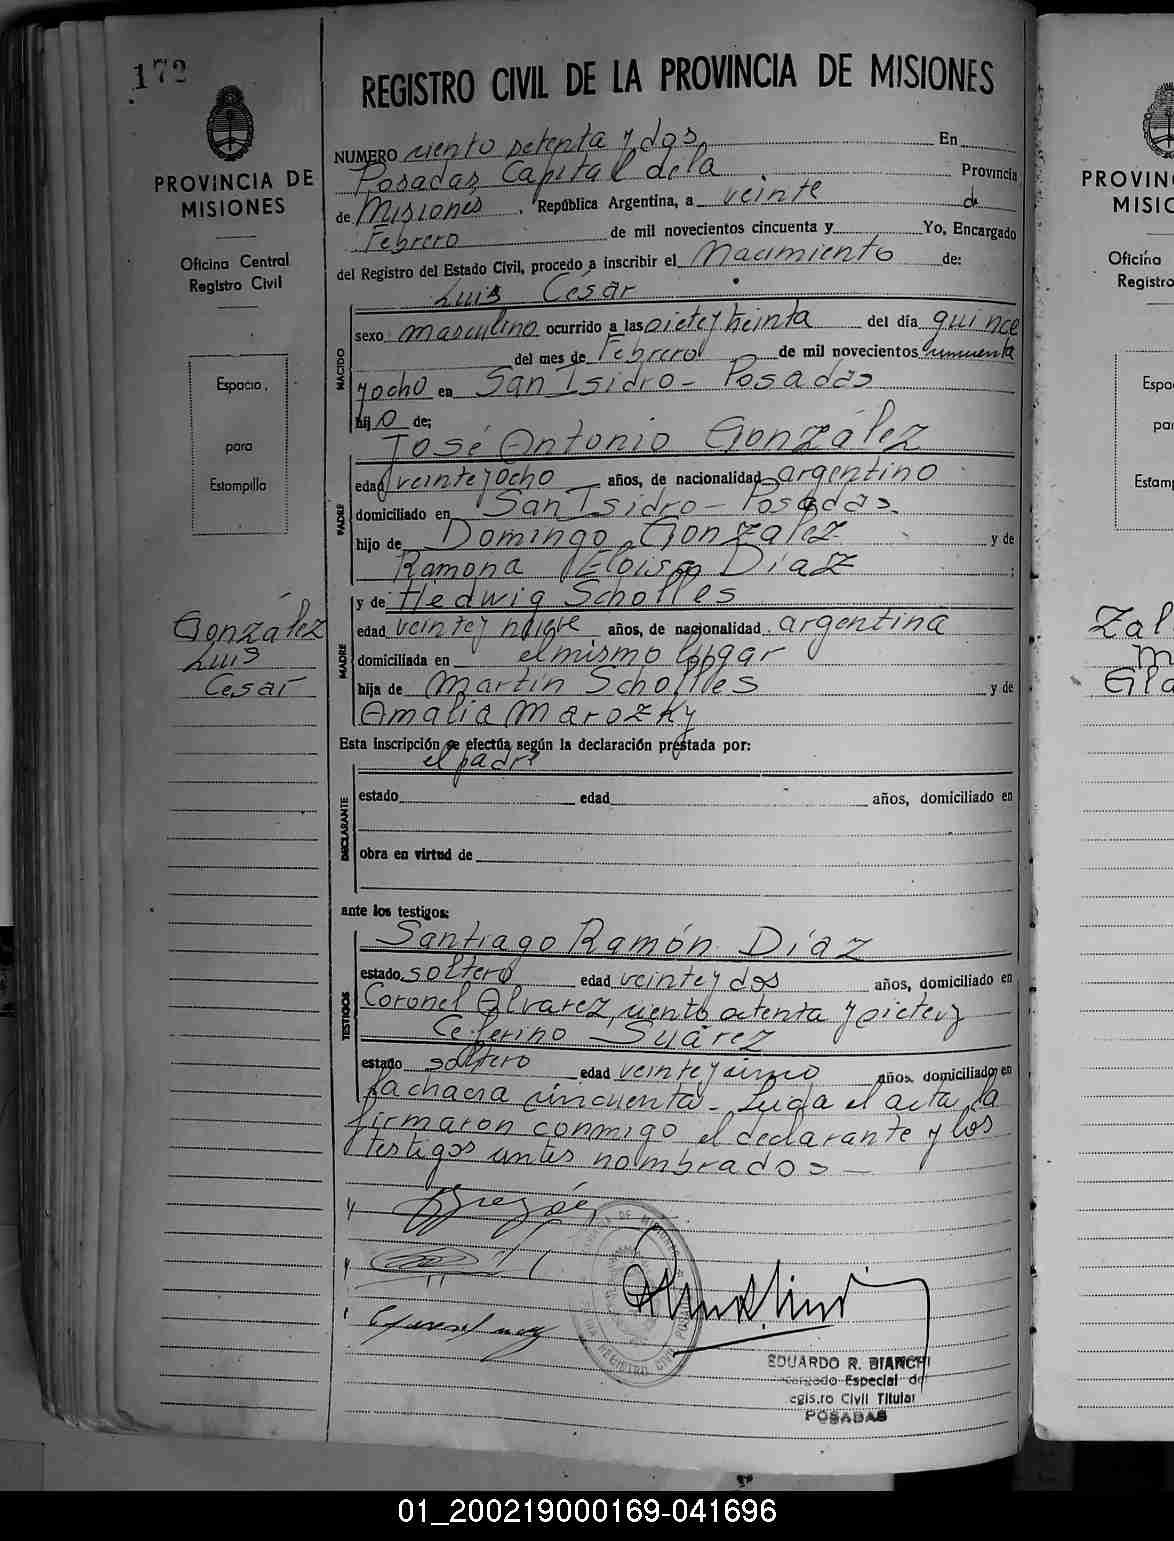 172
PROVINCIA DE
MISIONES
Oficina Central
Registro Civil
Espacio
para
Estampilla
González
Luis
Cesar
REGISTRO CIVIL DE LA PROVINCIA DE MISIONES
NUMERO ciento setenta y dos En
Posadas, Capital dela Provincia
de Misiones, República Argentina, a veinte de
Febrero de mil novecientos cincuenta y Yo, Encargado
del Registro del Estado Civil, procedo a inscribir el Nacimiento de:
Luis César
NACIDO
sexo masculino ocurrido a las siete y treinta del día quince
del mes de Febrero de mil novecientos cincuenta
y ocho en San Isidro - Posadas
hijo de:
José Antonio González
PADRE
edad veinte y ocho años, de nacionalidad argentino
domiciliado en San Isidro - Posadas
hijo de Domingo González y de
Ramona Eloisa Díaz ;
MADRE
y de Hedwig Scholles
edad veinte y nueve años, de nacionalidad argentina
domiciliada en el mismo lugar
hija de Martin Scholles y de
Amalia Marozky
Esta inscripción se efectúa según la declaración prestada por:
el padre
DECLARANTE
estado edad años, domiciliado en
obra en virtud de
ante los testigos:
Santiago Ramón Díaz
TESTIGOS
estado soltero edad veinte y dos años, domiciliado en
Coronel Alvarez, ciento setenta y siete y
Ceferino Suárez
estado soltero edad veinte y cinco años, domiciliado en
la chacra cincuenta - Leida el acta, la
firmaron conmigo el declarante y los
testigos antes nombrados -
EDUARDO R. BIANCHI
Encargado Especial del
Registro Civil Titular
POSADAS
PROVIN
MISIO
Oficina
Registro
Espa
par
Estamp
Zal
M
Gla
01_200219000169-041696